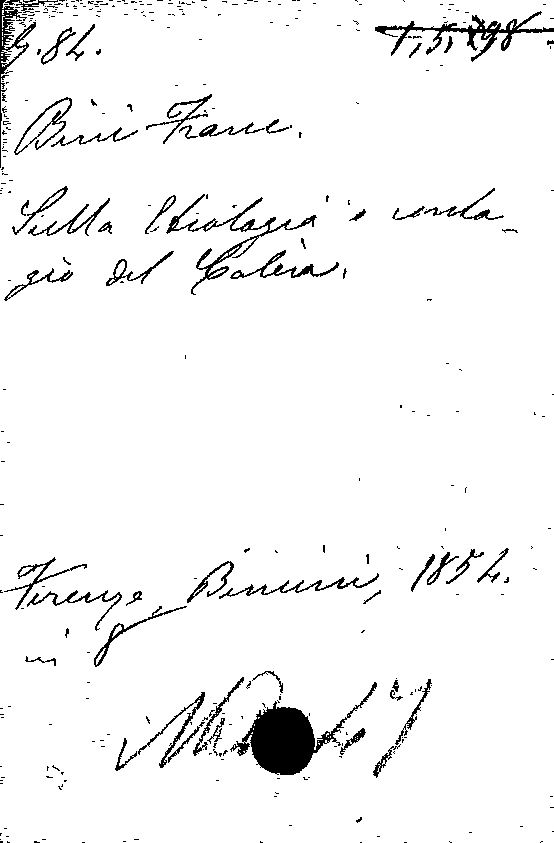 G. 84.
1, 5, 298
Bini Franc.
Sulla Etiologia e conta-
gio del Colèra.
Firenze, Bencini, 1854.
in 8